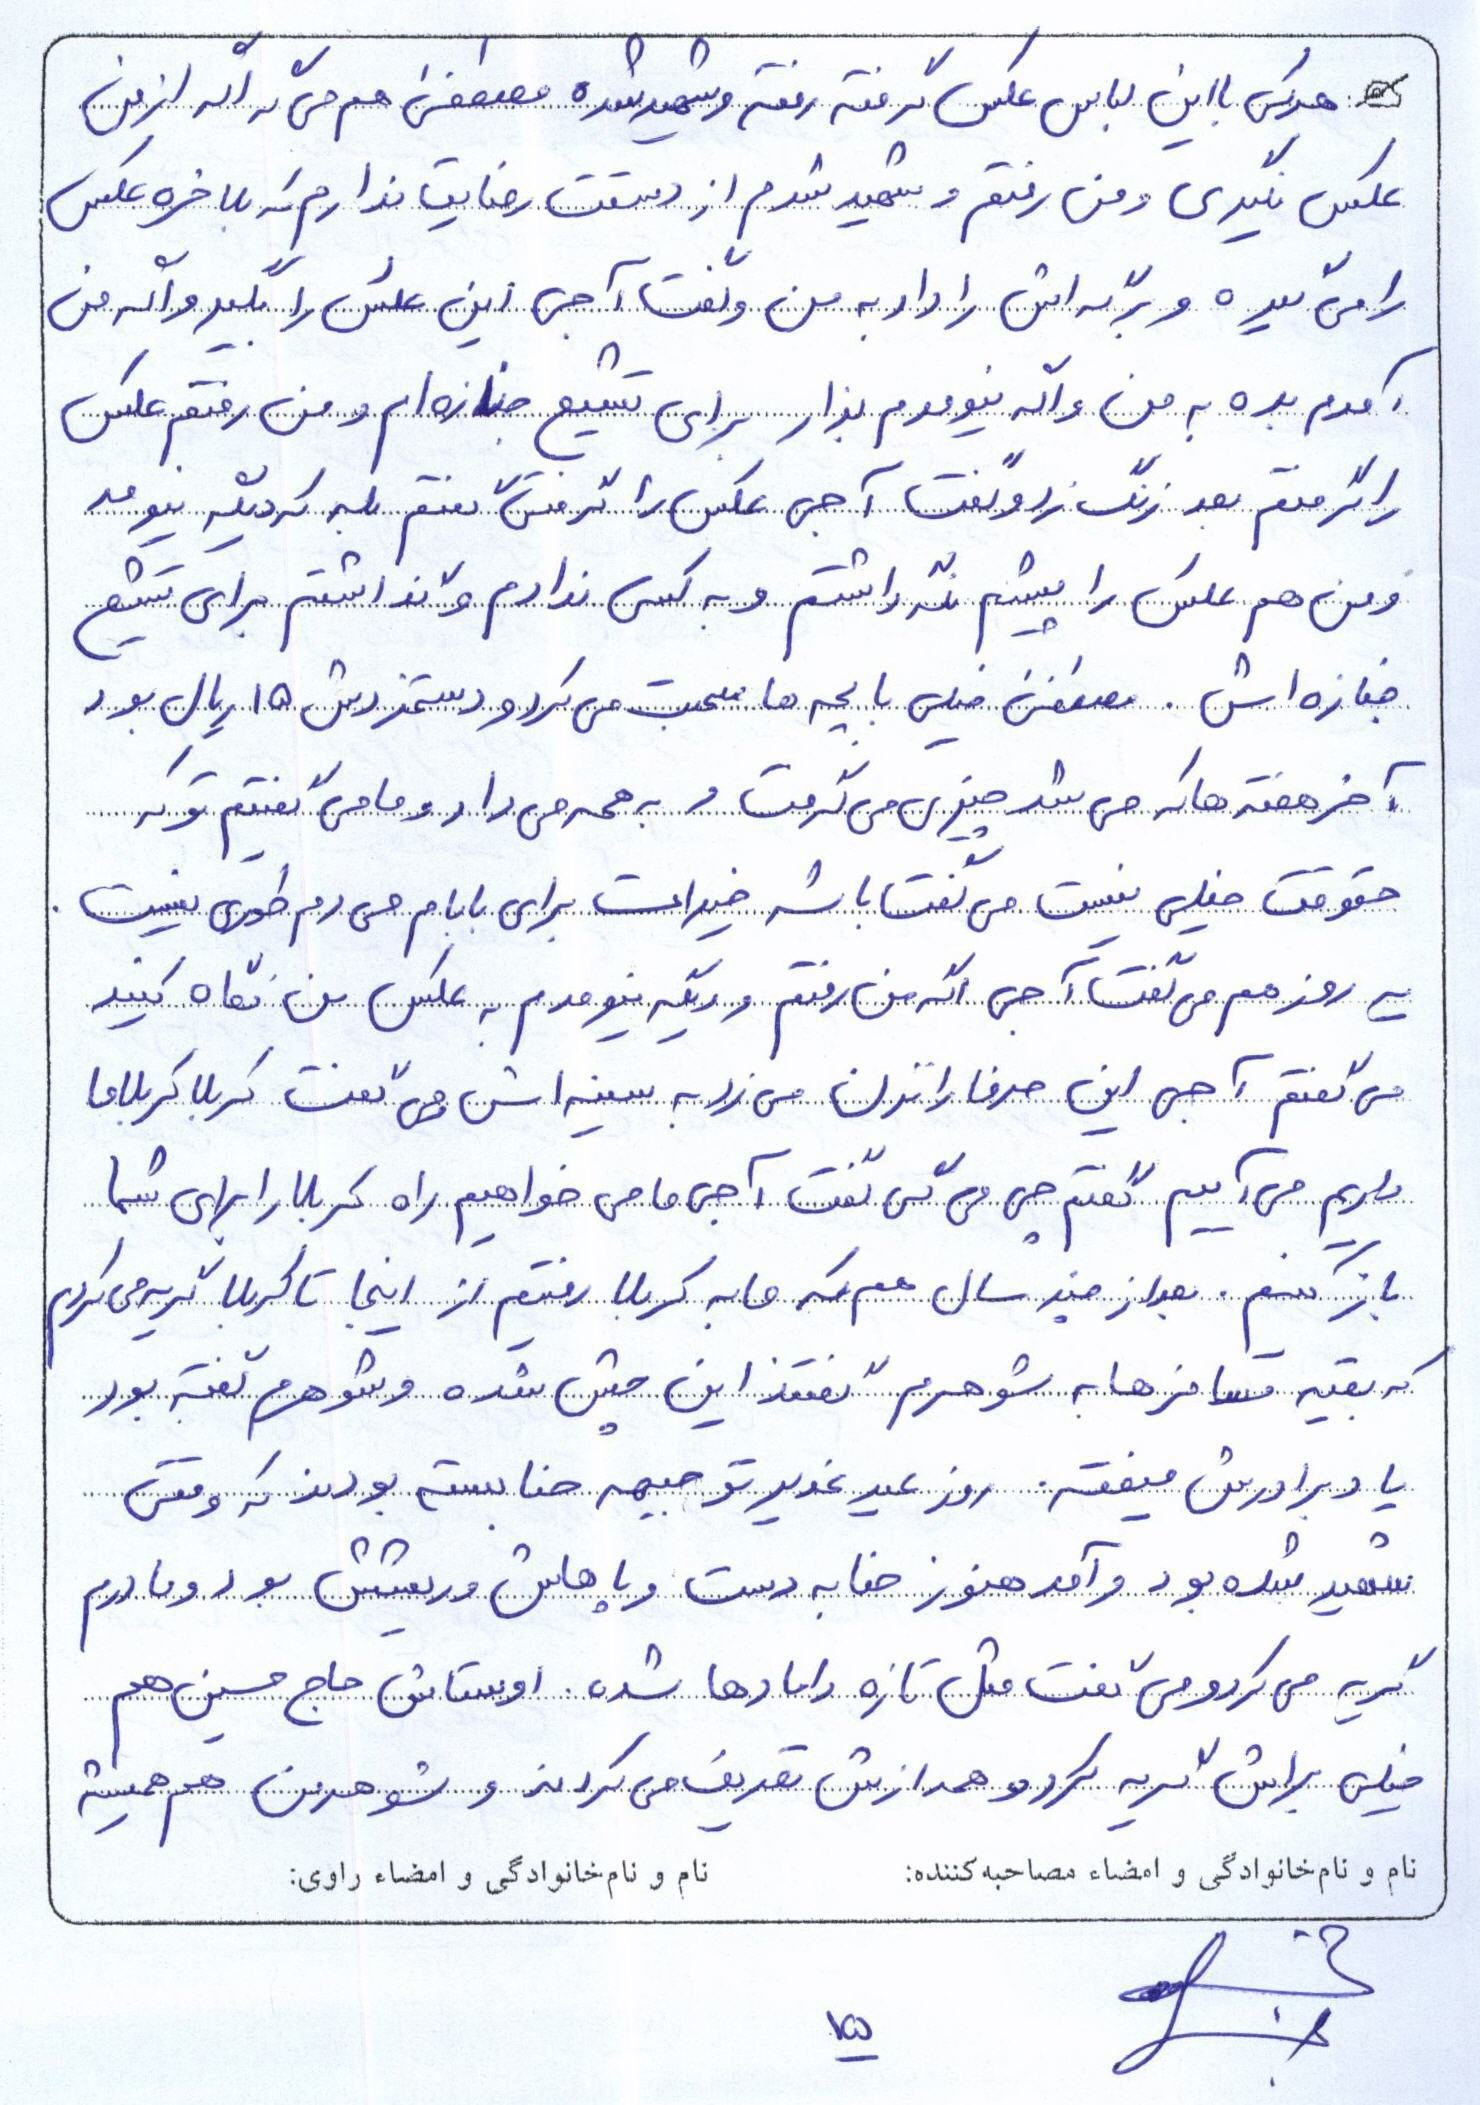 هرکس با این لباس عکس گرفته رفته و شهید شده مصطفی هم می گه اگه از من
عکس نگیری و من رفتم و شهید شدم از دستت رضایت ندارم که بلاخره عکس
را می گیره و برگه اش را داد به من و گفت آجی این عکس را بگیر و اگه من
آمدم بده به من و اگه نیومدم بذار برای تشیع جنازه ام و من رفتم عکس
را گرفتم بعد زنگ زد و گفت آجی عکس را گرفتی گفتم بله که دیگه نیومد
و من هم عکس را پیشم نگه داشتم و به کسی ندادم و گذاشتم برای تشیع
جنازه اش . مصطفی خیلی با بچه ها صحبت می کرد و دستمزدش ۱۵ ریال بود
آخر هفته ها که می شد چیزی می گرفت و به همه می داد و ما می گفتیم تو که
حقوقت خیلی نیست می گفت باشه خیرات برای بابام می دم طوری نیست .
یه روز هم می گفت آجی اگه من رفتم و دیگه نیومدم به عکس من نگاه کنید
می گفتم آجی این حرفا را نزن می زد به سینه اش و می گفت کربلا کربلا ما
داریم می آییم گفتم چی می گی گفت آجی ما می خواهیم راه کربلا را برای شما
باز کنیم . بعد از چند سال هم که ما به کربلا رفتیم از اینجا تا کربلا گریه می کردم
که بقیه مسافرها به شوهرم گفتند این چش شده و شوهرم گفته بود
یاد برادرش میفته . روز عید غدیر تو جبهه حنا بسته بودند که وقتی
شهید شده بود و آمد هنوز حنا به دست و پاهاش و ریشش بود و مادرم
گریه می کرد و می گفت مثل تازه دامادها شده . اوستاش حاج حسین هم
خیلی براش گریه کرد و همه ازش تعریف می کردند و شوهر من هم همیشه
نام و نام‌خانوادگی و امضاء مصاحبه‌کننده: نام و نام‌خانوادگی و امضاء راوی: